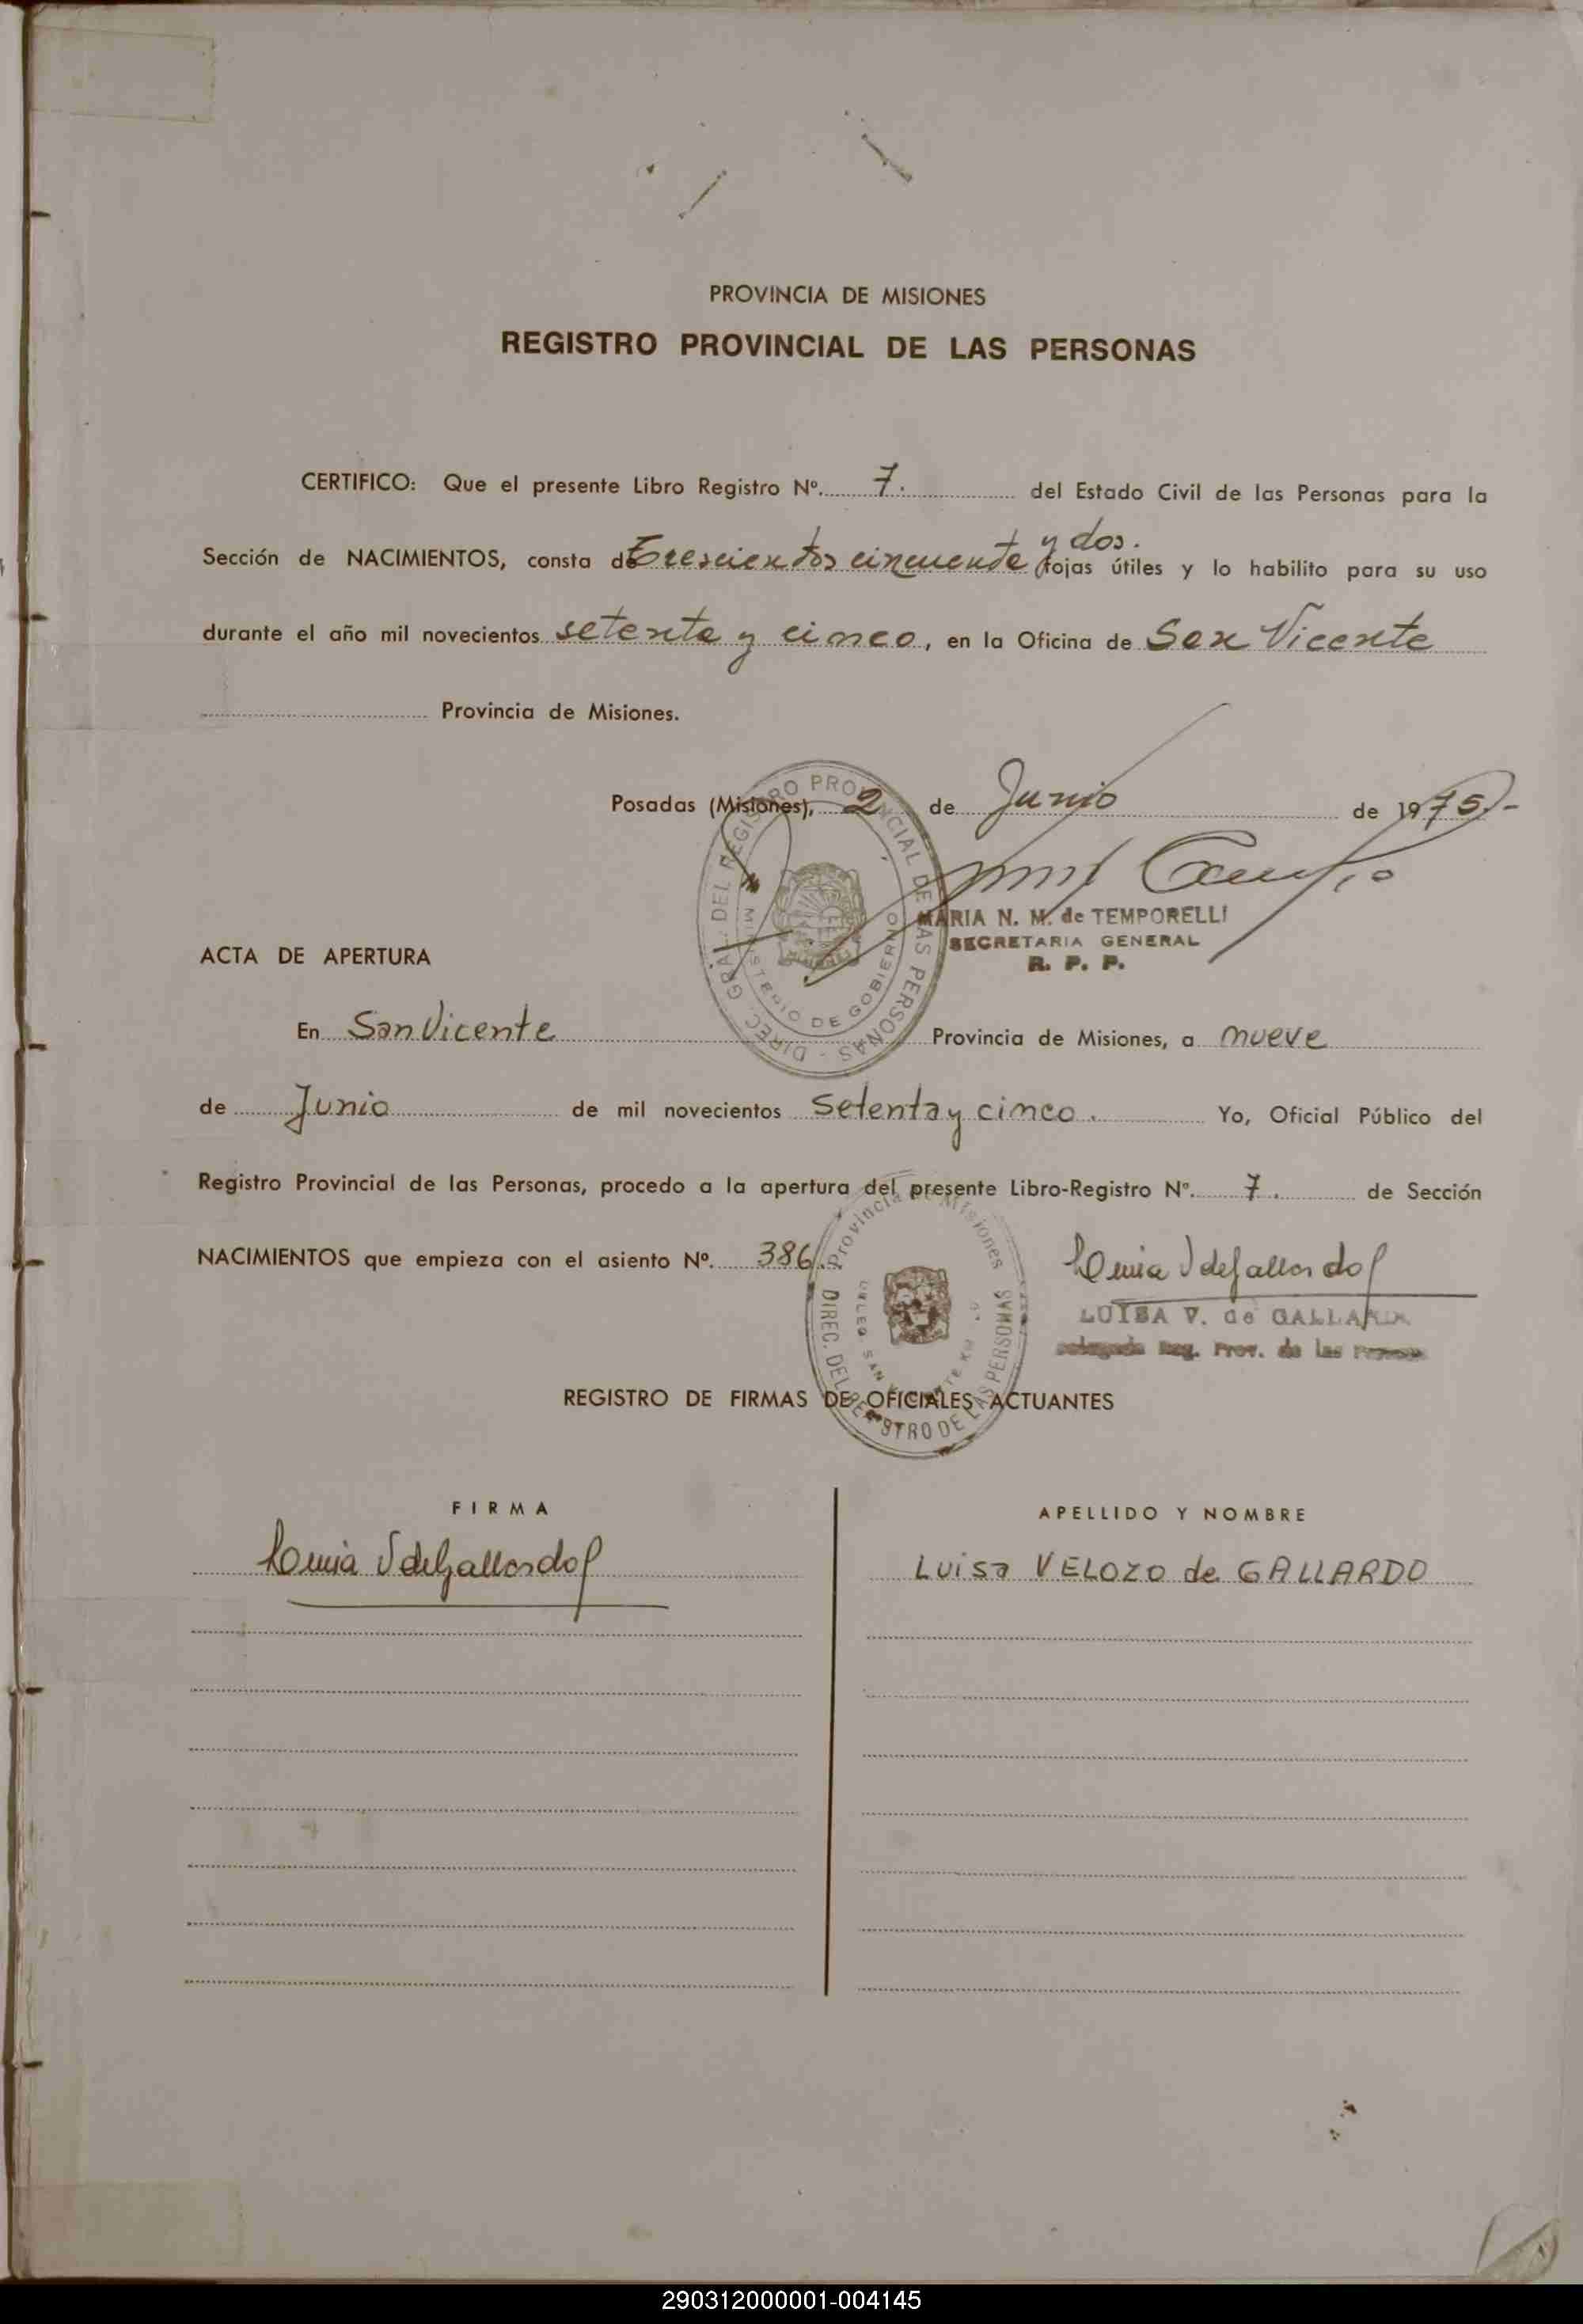 PROVINCIA DE MISIONES
REGISTRO PROVINCIAL DE LAS PERSONAS
CERTIFICO: Que el presente Libro Registro Nº. 7. del Estado Civil de las Personas para la
y dos.
Sección de NACIMIENTOS, consta de Trescientos cincuenta fojas útiles y lo habilito para su uso
durante el año mil novecientos setenta y cinco, en la Oficina de San Vicente
Provincia de Misiones.
Posadas (Misiones), 2 de Junio de 1975.-
DIREC. GRAL. DEL REGISTRO PROVINCIAL DE LAS PERSONAS -
MINISTERIO DE GOBIERNO
MISIONES
MARIA N. M. de TEMPORELLI
SECRETARIA GENERAL
R. P. P.
ACTA DE APERTURA
En San Vicente Provincia de Misiones, a nueve
de Junio de mil novecientos Setenta y cinco. Yo, Oficial Público del
Registro Provincial de las Personas, procedo a la apertura del presente Libro-Registro Nº. 7. de Sección
NACIMIENTOS que empieza con el asiento Nº. 386.
Provincia de Misiones
DIREC. DEL REGISTRO DE LAS PERSONAS
Luisa V de Gallardo
LUISA V. de GALLARDO
Delegada Reg. Prov. de las Personas
REGISTRO DE FIRMAS DE OFICIALES ACTUANTES
FIRMA
APELLIDO Y NOMBRE
Luisa V de Gallardo
Luisa VELOZO de GALLARDO
290312000001-004145